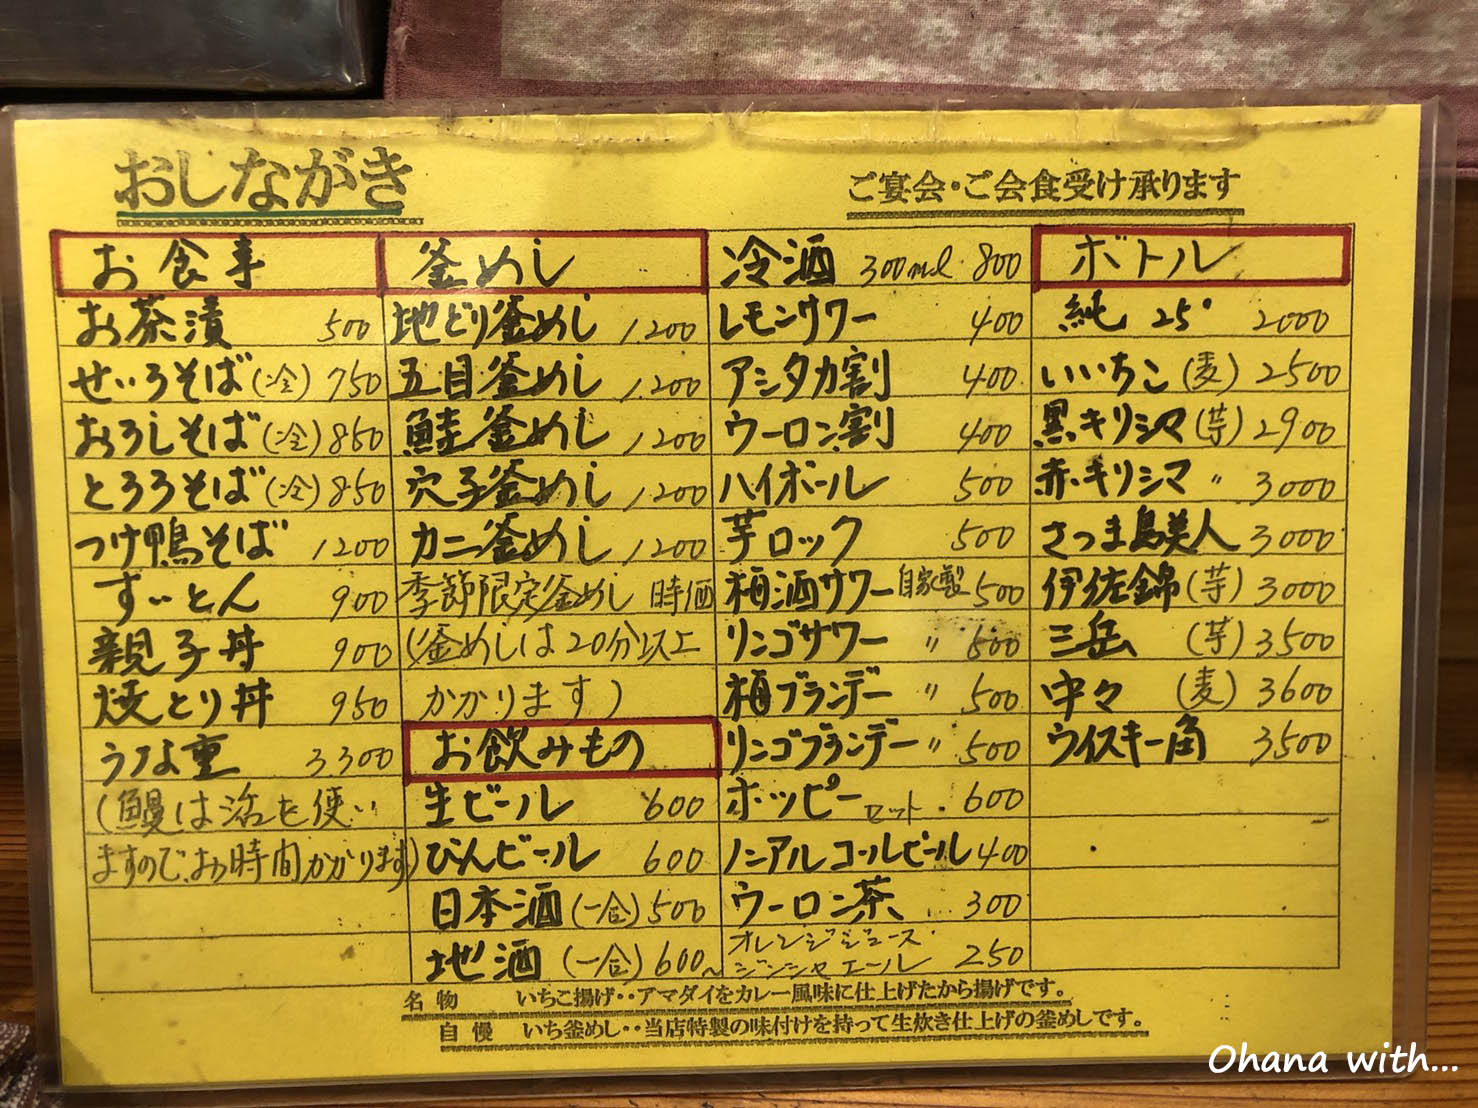 おしながき
ご宴会・ご会食受け承ります
お食事
お茶漬 500
せいろそば(冷) 750
おろしそば(冷) 850
とろろそば(冷) 850
つけ鴨そば 1200
すいとん 900
親子丼 900
焼とり丼 950
うな重 3.300
(鰻は活を使い
ますので、お時間かかります)
釜めし
地どり釜めし 1.200
五目釜めし 1.200
鮭釜めし 1200
穴子釜めし 1200
カニ釜めし 1200
季節限定釜めし 時価
(釜めしは20分以上
かかります)
お飲みもの
生ビール 600
びんビール 600
日本酒(一合) 500
地酒(一合) 600~
冷酒 300ml 800
レモンサワー 400
アシタカ割 400
ウーロン割 400
ハイボール 500
芋ロック 500
梅酒サワー 自家製 500
リンゴサワー 〃 500
梅ブランデー 〃 500
リンゴブランデー 〃 500
ホッピー セット 600
ノンアルコールビール 400
ウーロン茶 300
オレンジジュース
ジンジャエール 250
ボトル
純 25° 2000
いいちこ(麦) 2500
黒キリシマ(芋) 2900
赤キリシマ 〃 3000
さつま島美人 3000
伊佐錦(芋) 3000
三岳 (芋) 3500
中々 (麦) 3600
ウイスキー角 3500
名物 いちこ揚げ・・アマダイをカレー風味に仕上げたから揚げです。
自慢 いち釜めし・・当店特製の味付けを持って生炊き仕上げの釜めしです。
Ohana with...